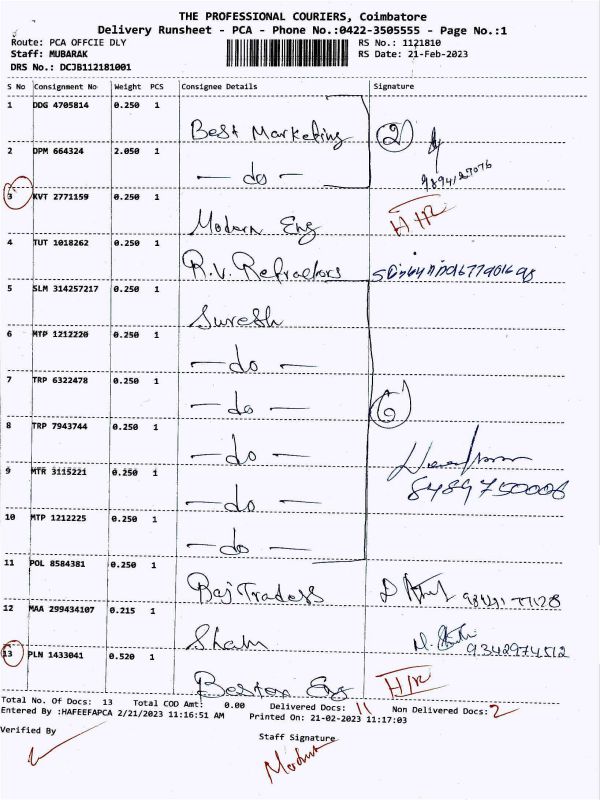 THE PROFESSIONAL COURIERS, Coimbatore
Delivery Runsheet - PCA - Phone No.:0422-3505555 - Page No.:1
Route: PCA OFFCIE DLY
RS No.: 1121810
Staff: MUBARAK
RS Date: 21-Feb-2023
DRS No.: DCJB112181001
S No Consignment No Weight PCS Consignee Details Signature
1 DDG 4705814 0.250 1 Best Marketing 2
2 DPM 664324 2.050 1 — do —
3 KVT 2771159 0.250 1 Modern Eng
4 TUT 1018262 0.250 1 R.V. Refractors
5 SLM 314257217 0.250 1 Suresh
6 MTP 1212220 0.250 1 — do —
7 TRP 6322478 0.250 1 — do — 6
8 TRP 7943744 0.250 1 — do —
9 MTR 3115221 0.250 1 — do — 8489750006
10 MTP 1212225 0.250 1 — do —
11 POL 8584381 0.250 1 Raj Traders
12 MAA 299434107 0.215 1 Sham 9342974512
13 PLN 1433041 0.520 1 Beston Eng
Total No. Of Docs: 13 Total COD Amt: 0.00 Delivered Docs: 11 Non Delivered Docs: 2
Entered By :HAFEEFAPCA 2/21/2023 11:16:51 AM Printed On: 21-02-2023 11:17:03
Verified By
Staff Signature